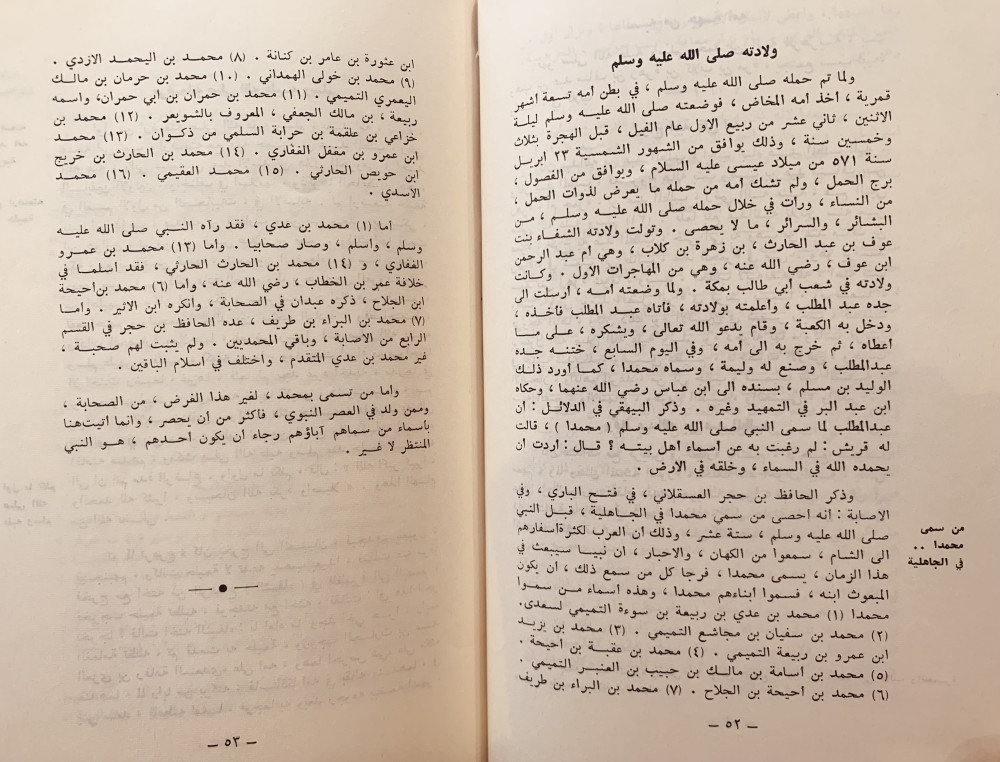 ولادته صلى الله عليه وسلم
ولما تم حمله صلى الله عليه وسلم ، في بطن أمه تسعة أشهر
قمرية ، أخذ أمه المخاض ، فوضعته صلى الله عليه وسلم ليلة
الاثنين ، ثاني عشر من ربيع الاول عام الفيل ، قبل الهجرة بثلاث
وخمسين سنة ، وذلك يوافق من الشهور الشمسية ٢٣ ابريل
سنة ٥٧١ من ميلاد عيسى عليه السلام ، ويوافق من الفصول ،
برج الحمل ، ولم تشك أمه من حمله ما يعرض لذوات الحمل ،
من النساء ، ورأت في خلال حمله صلى الله عليه وسلم ، من
البشائر ، والسرائر ، ما لا يحصى . وتولت ولادته الشفاء بنت
عوف بن عبد الحارث ، بن زهرة بن كلاب ، وهي أم عبد الرحمن
ابن عوف ، رضي الله عنه ، وهي من المهاجرات الاول . وكانت
ولادته في شعب أبي طالب بمكة . ولما وضعته أمه ، أرسلت الى
جده عبد المطلب ، وأعلمته بولادته ، فأتاه عبد المطلب فأخذه ،
ودخل به الكعبة ، وقام يدعو الله تعالى ، ويشكره ، على ما
أعطاه ، ثم خرج به الى أمه ، وفي اليوم السابع ، ختنه جده
عبدالمطلب ، وصنع له وليمة ، وسماه محمدا ، كما أورد ذلك
الوليد بن مسلم ، بسنده الى ابن عباس رضي الله عنهما ، وحكاه
ابن عبد البر في التمهيد وغيره . وذكر البيهقي في الدلائل : أن
عبدالمطلب لما سمى النبي صلى الله عليه وسلم ( محمدا ) ، قالت
له قريش : لم رغبت به عن أسماء أهل بيته ؟ قال : أردت أن
يحمده الله في السماء ، وخلقه في الارض .
وذكر الحافظ بن حجر العسقلاني ، في فتح الباري ، وفي
الاصابة : أنه أحصى من سمي محمدا في الجاهلية ، قبل النبي
صلى الله عليه وسلم ، ستة عشر ، وذلك أن العرب لكثرة أسفارهم
الى الشام ، سمعوا من الكهان ، والاحبار ، ان نبيا سيبعث في
هذا الزمان ، يسمى محمدا ، فرجا كل من سمع ذلك ، أن يكون
المبعوث ابنه ، فسموا أبناءهم محمدا ، وهذه أسماء من سموا
محمدا (١) محمد بن عدي بن ربيعة بن سوءة التميمي لسعدى.
(٢) محمد بن سفيان بن مجاشع التميمي . (٣) محمد بن يزيد
ابن عمرو بن ربيعة التميمي . (٤) محمد بن عقبة بن أحيحة .
(٥) محمد بن أسامة بن مالك بن حبيب بن العنبر التميمي .
(٦) محمد بن أحيحة بن الجلاح . (٧) محمد بن البراء بن طريف
من سمى
محمدا . .
في الجاهلية
– ٥٢ –
ابن عثورة بن عامر بن كنانة . (٨) محمد بن اليحمد الازدي .
(٩) محمد بن خولى الهمداني . (١٠) محمد بن حرمان بن مالك
اليعمري التميمي . (١١) محمد بن حمران بن أبي حمران، واسمه
ربيعة ، بن مالك الجعفي ، المعروف بالشويعر . (١٢) محمد بن
خزاعي بن علقمة بن حرابة السلمي من ذكوان . (١٣) محمد
ابن عمرو بن مغفل الغفاري . (١٤) محمد بن الحارث بن خريج
ابن حويص الحارثي . (١٥) محمد العقيمي . (١٦) محمد
الاسدي .
أما (١) محمد بن عدي ، فقد رآه النبي صلى الله عليه
وسلم ، وأسلم ، وصار صحابيا . وأما (١٣) محمد بن عمرو
الغفاري ، و (١٤) محمد بن الحارث الحارثي ، فقد أسلما في
خلافة عمر بن الخطاب ، رضي الله عنه ، وأما (٦) محمد بن أحيحة
ابن الجلاح ، ذكره عبدان في الصحابة ، وأنكره ابن الاثير . وأما
(٧) محمد بن البراء بن طريف ، عده الحافظ بن حجر في القسم
الرابع من الاصابة ، وباقي المحمديين . ولم يثبت لهم صحبة ،
غير محمد بن عدي المتقدم ، واختلف في اسلام الباقين .
وأما من تسمى بمحمد ، لغير هذا الغرض ، من الصحابة ،
وممن ولد في العصر النبوي ، فأكثر من أن يحصر ، وانما أتيت هنا
بأسماء من سماهم آباؤهم رجاء أن يكون أحدهم ، هو النبي
المنتظر لا غير .
– ٥٣ –